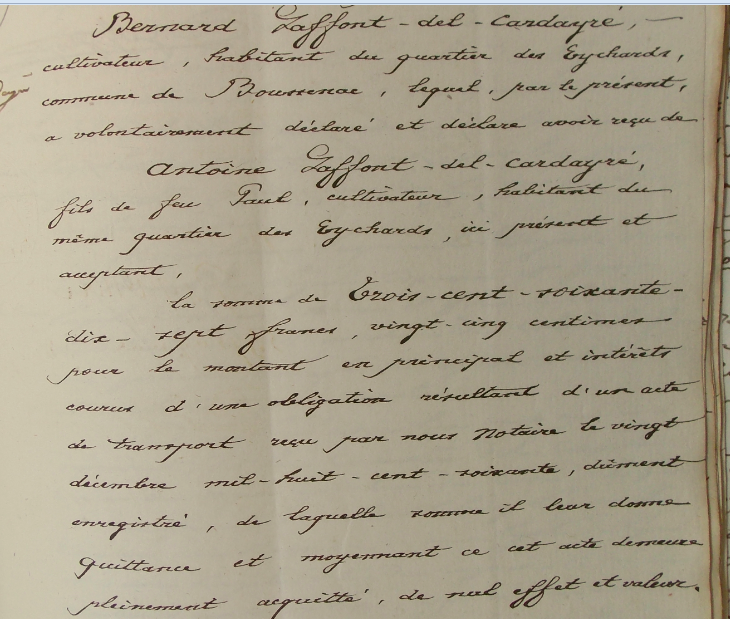 Bernard Laffont-del-Cardayré,
cultivateur, habitant du quartier des Eychards,
commune de Boussenac, lequel, par le présent,
a volontairement déclaré et déclare avoir reçu de
Antoine Laffont-del-Cardayré,
fils de feu Paul, cultivateur, habitant du
même quartier des Eychards, ici présent et
acceptant,
la somme de Trois-cent-soixante-
dix-sept francs, vingt-cinq centimes
pour le montant en principal et intérêts
courus d'une obligation résultant d'un acte
de transport reçu par nous Notaire le vingt
décembre mil-huit-cent-soixante, dûment
enregistré, de laquelle somme il leur donne
quittance et moyennant ce cet acte demeure
pleinement acquitté, de nul effet et valeur.